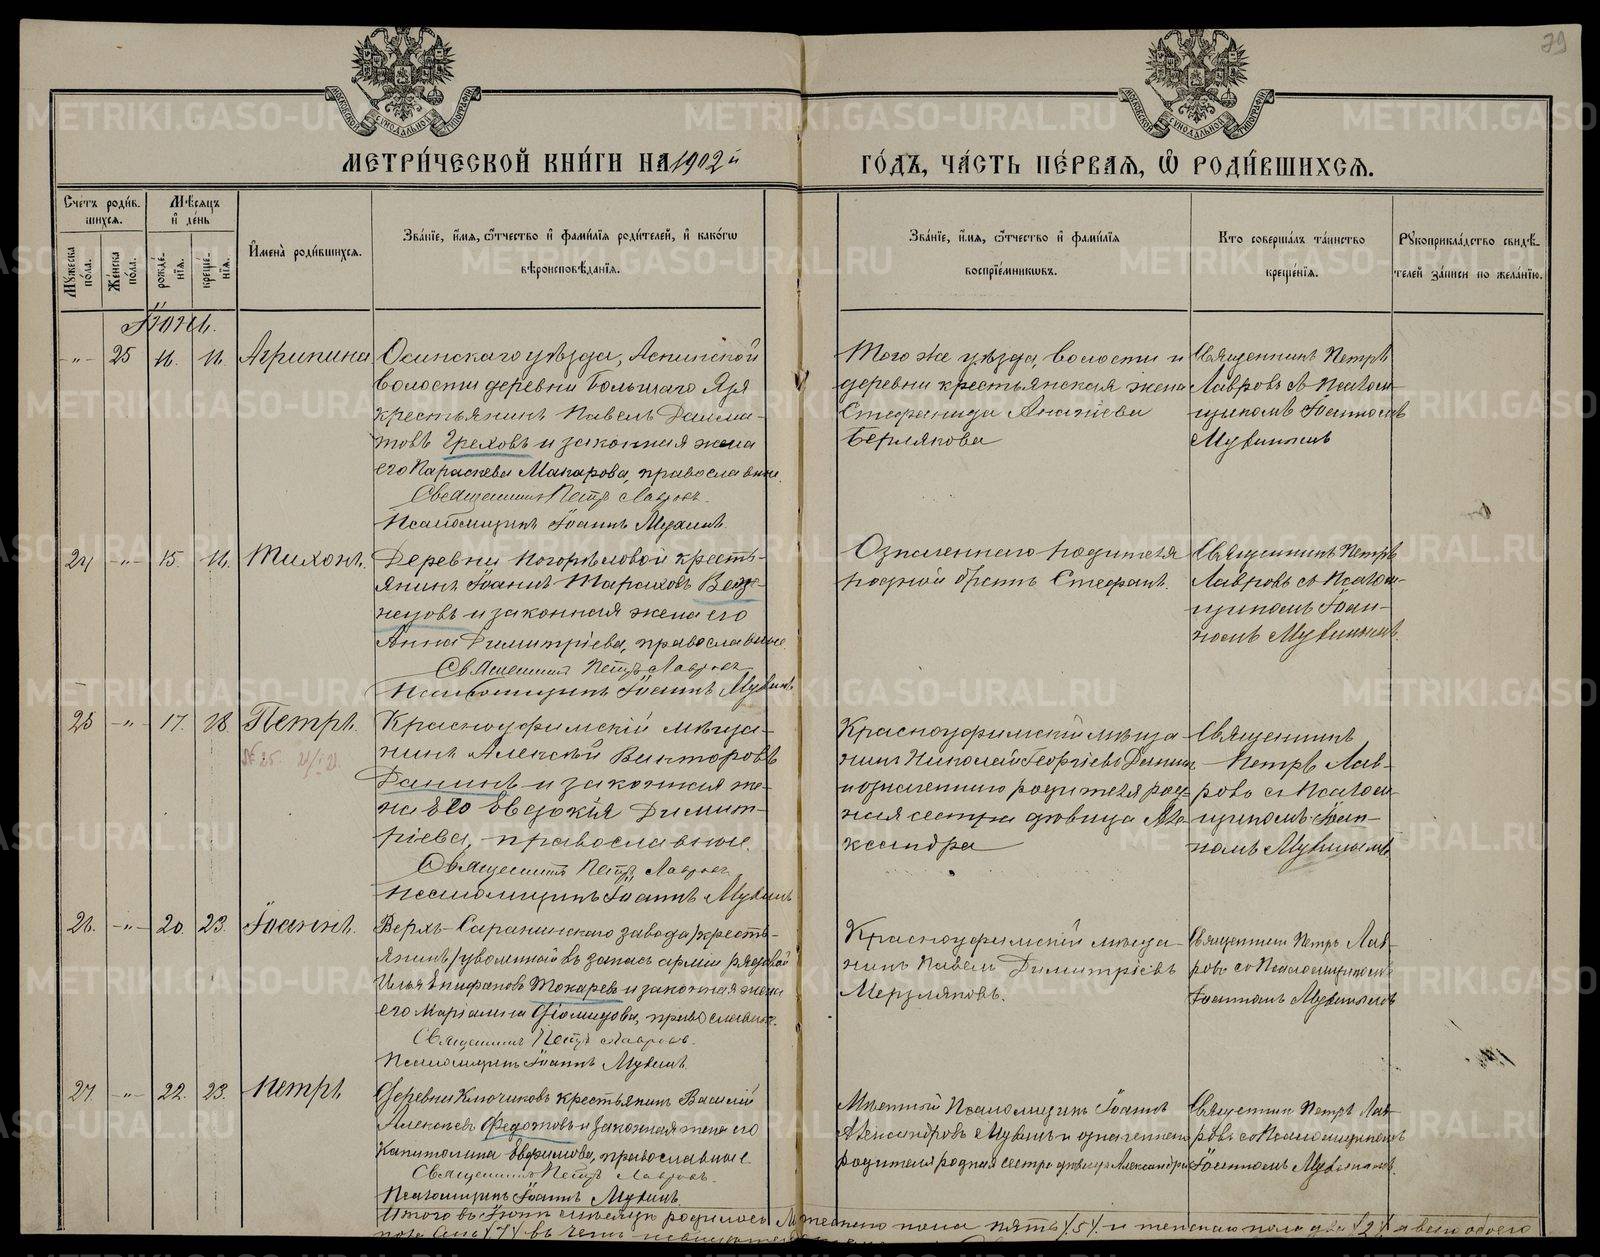 79
МЕТРИ́ЧЕСКОЙ КНИ́ГИ НА 1902й
ГО́ДЪ, ЧА́СТЬ ПЕ́РВАЯ, Ѽ РОДИ́ВШИХСЯ.
Сче́тъ роди́в-
шихся.
Мѣ́сяцъ
и де́нь
Мꙋ́жеска по́ла.
Же́нска по́ла.
рожде́-
нїя.
креще́-
нїя.
И҆мена̀ роди́вшихся.
Зва́нїе, и҆́мя, ѻ҆́тчество и҆ фами́лїя роди́телей, и҆ како́гѡ
вѣроисповѣ́данїя.
Зва́нїе, и҆́мя, ѻ҆́тчество и҆ фами́лїя
воспрїе́мникѡвъ.
Кто соверша́лъ та́инство
креще́нїя.
Рꙋкоприкла́дство свидѣ́-
телей за́писи по жела́нїю.
Іюнь.
-„- 25 16. 16. Агрипина
Осинскаго уѣзда, Аспинской
волости деревни Большаго Яза
крестьянинъ Павелъ Далма-
товъ Греховъ и законная жена
его Параскева Макарова, православные.
Священникъ Петръ Лавровъ.
Псаломщикъ Іоаннъ Мухинъ.
Того же уѣзда, волости и
деревни крестьянская жена
Стефанида Ананіева
Берлякова
Священникъ Петръ
Лавровъ съ Псалом-
щикомъ Іоанномъ
Мухинымъ
24 -„- 15. 16. Тихонъ.
Деревни Погорѣловой кресть-
янинъ Іоаннъ Тарасовъ
и законная жена его
Анна Димитріева, православные.
Священникъ Петръ Лавровъ
Псаломщикъ Іоаннъ Мухинъ
Означеннаго родителя
родной братъ Стефанъ.
Священникъ Петръ
Лавровъ съ Псалом-
щикомъ Іоан-
номъ Мухинымъ.
25 -„- 17. 18. Петръ.
№ 25.
Красноуфимскій мѣща-
нинъ Алексѣй Викторовъ
Данинъ и законная же-
на его Евдокія Димит-
ріева, православные.
Священникъ Петръ Лавровъ
Псаломщикъ Іоаннъ Мухинъ
Красноуфимскій мѣща-
нинъ Николай Георгіевъ Данинъ
и означеннаго родителя род-
ная сестра дѣвица Але-
ксандра
Священникъ
Петръ Лав-
ровъ съ Псалом-
щикомъ Іоан-
номъ Мухинымъ
26. -„- 20. 23. Іоаннъ.
Верхъ-Саранинскаго завода кресть-
янинъ /уволенный въ запасъ арміи рядовой
Илья Епифановъ Токаревъ и законная жена
его Маріамна Ѳомидова, православные.
Священникъ Петръ Лавровъ.
Псаломщикъ Іоаннъ Мухинъ.
Красноуфимскій мѣща-
нинъ Павелъ Димитріевъ
Мерзляковъ.
Священникъ Петръ Лав-
ровъ со Псаломщикомъ
Іоанномъ Мухинымъ
27. -„- 22. 23. Петръ
Деревни Ключиковъ крестьянинъ Василій
Алексѣевъ Федотовъ и законная жена его
Капитолина Евфимова, православные.
Священникъ Петръ Лавровъ.
Псаломщикъ Іоаннъ Мухинъ.
Мѣстный Псаломщикъ Іоаннъ
Александровъ Мухинъ и означеннаго
родителя родная сестра дѣвица Александра
Священникъ Петръ Лав-
ровъ со Псаломщикомъ
Іоанномъ Мухинымъ.
Итого въ Іюнѣ мѣсяцѣ родилось мужескаго пола пять /5/ и женскаго пола два /2/ а всего обоего
пола семь /7/ въ